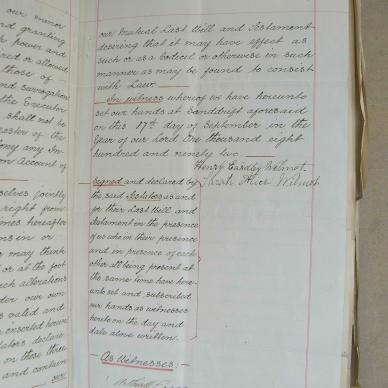 our minor
and granting
power and
ed or allowed
those of
and surrogation
the Executor
shall not be
ester of the
ony any In-
on Account of
selves jointly
right from
times hereafter
ons in or
may think
or at the foot
such alterations
der our own
as valid and
inserted herein
tators declare
on these three
and contain
our
our Mutual Last Will and Testament
desiring that it may have effect as
such or as a Codicil or otherwise in such
manner as may be found to consist
with Law.
In witness whereof we have hereunto
set our hands at Zanddrift aforesaid
on this 17th day of September in the
Year of our Lord One thousand eight
hundred and ninety two.
Henry Eardley Wilmot.
Sarah Alice Wilmot
Signed and declared by
the said Testators as and
for their Last Will and
Testament in the presence
of us who in their presence
and in presence of each
other all being present at
the same time have here-
unto set and subscribed
our hands as witnesses
hereto on the day and
date above written.
As Witnesses:-